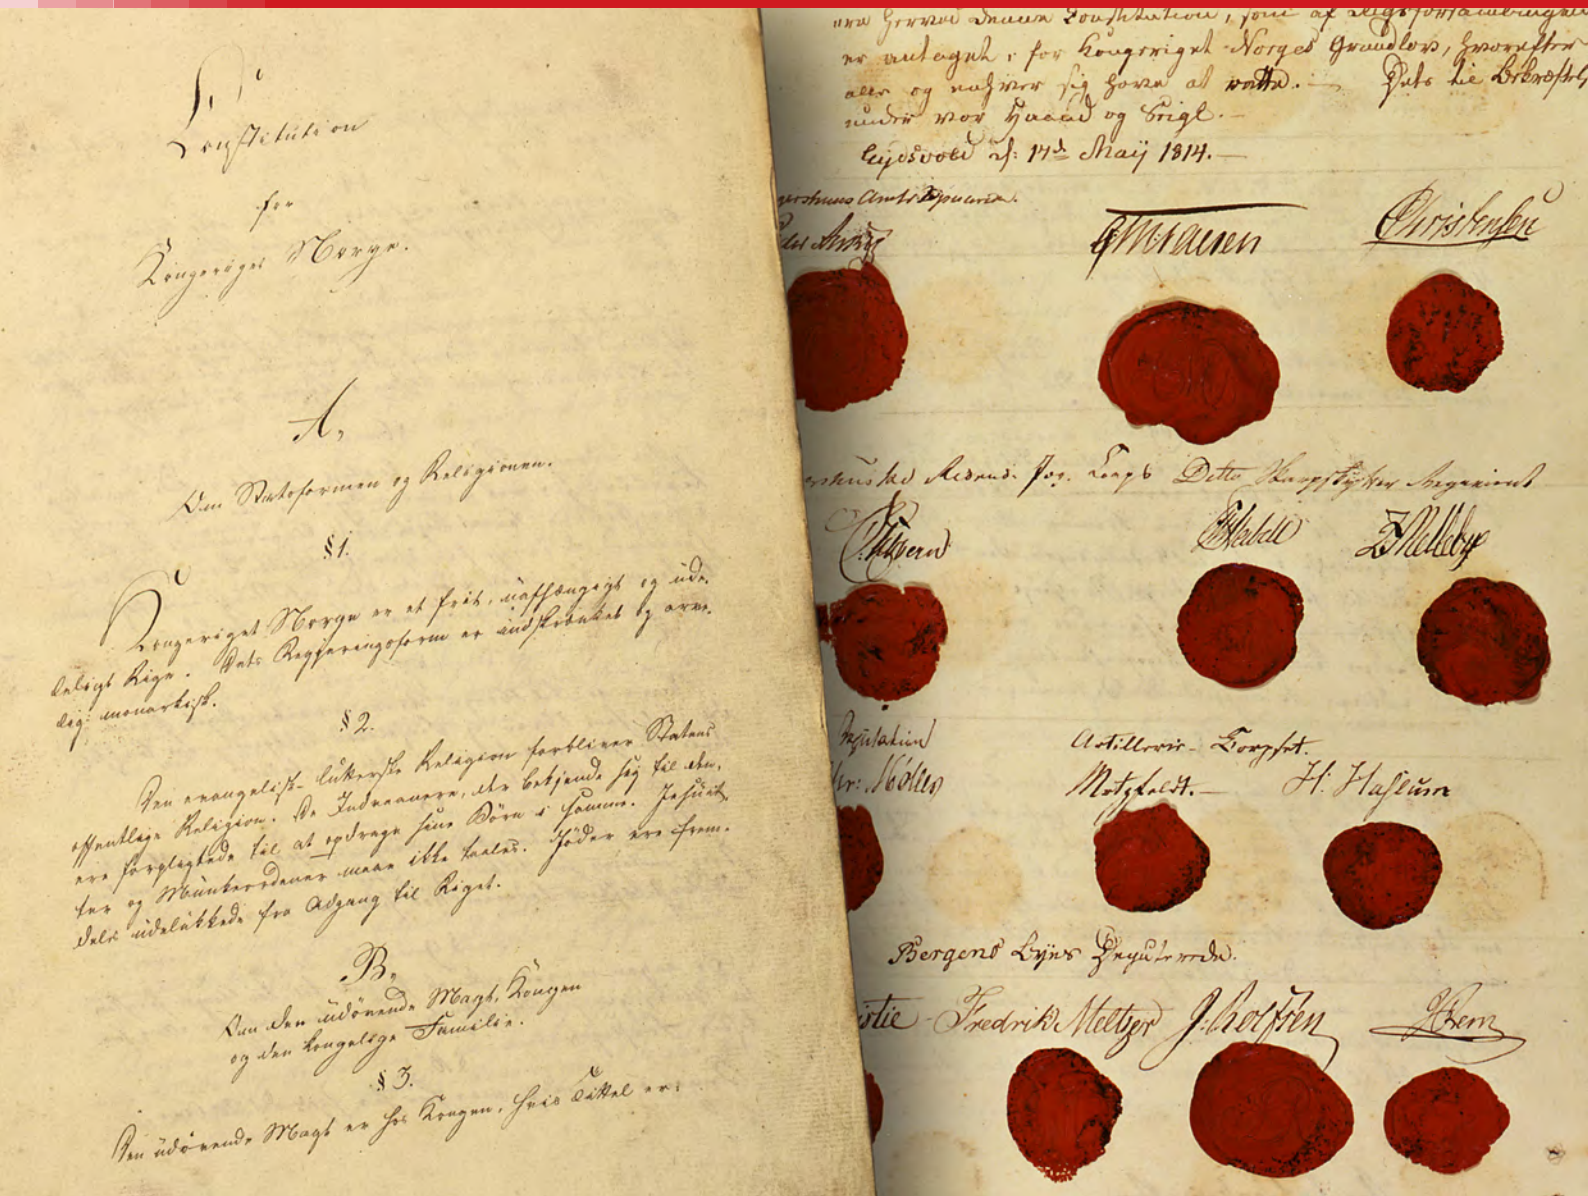 Constitution
for
Kongeriget Norge.
A.
Om Statsformen og Religionen.
§ 1.
Kongeriget Norge er et frit, uafhængigt og ude-
leligt Rige. Dets Regjeringsform er indskrænket og arve-
lig monarkisk.
§ 2.
Den evangelisk-lutterske Religion forbliver Statens
offentlige Religion. De Indvaanere, der bekjende sig til den,
ere forpligtede til at opdrage sine Börn i samme. Jesuit-
ter og Munkeordener maae ikke taales. Jöder ere frem-
deles udelukkede fra Adgang til Riget.
B.
Om den udövende Magt, Kongen
og den kongelige Familie.
§ 3.
Den udövende Magt er hos Kongen, hvis Tittel er:
denne Constitution, som af Rigsforsamlingen
er antaget, for Kongeriget Norges Grundlov, hvorefter
alle og enhver sig have at rætte. Dets til Bekræftelse
under vor Haand og Seigl.
Eydsvold d: 14d Maij 1814.
Amts
Christensen
Corps Ditto Skarpskytter Regiment
P. Hount
Z Mellebye
Deputation Artillerie-Corpset.
Motzfeldt. H: Haslum
Bergens Byes Deputerede.
istie Fredrik Meltzer J: Rolfsen JRein